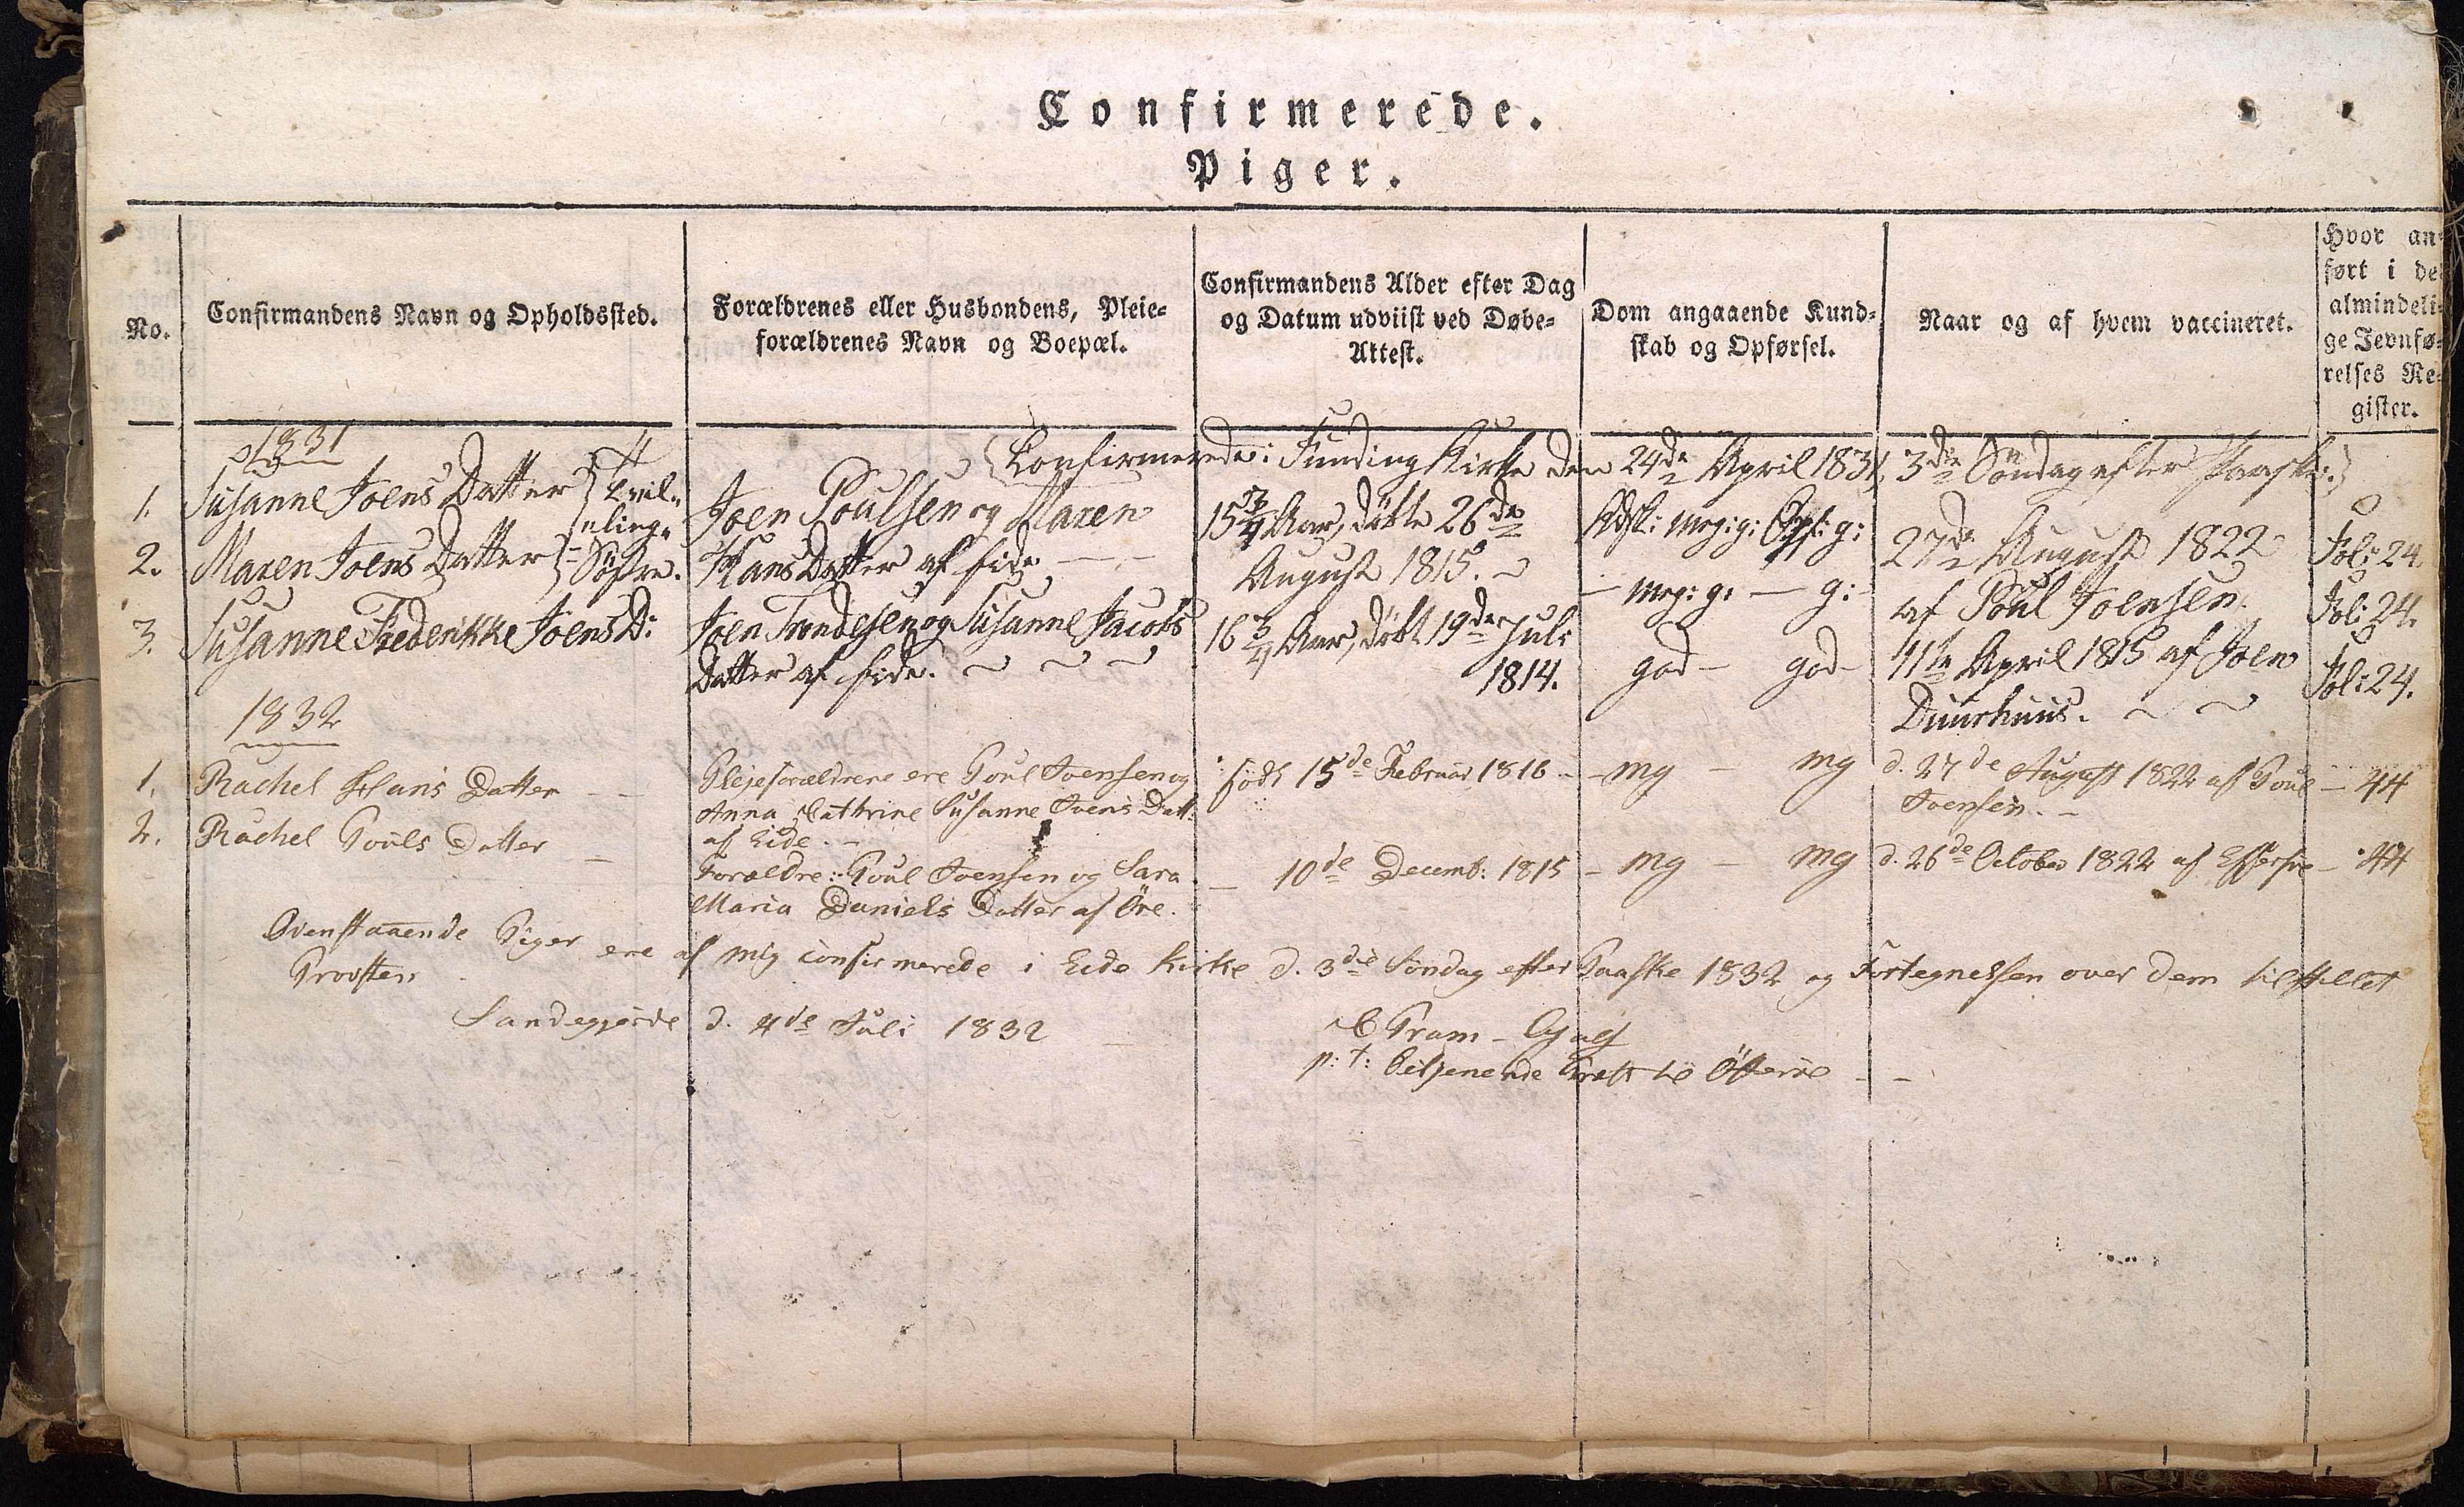 Confirmerede.
Piger.
No.
Confirmandens Navn og Opholdssted.
Forældrenes eller Husbondens, Pleie-
forældrenes Navn og Boepæl.
Confirmandens Alder efter Dag
og Datum udviist ved Døbe-
Attest.
Dom angaaende Kund-
skab og Opførsel.
Naar og af hvem vaccineret.
Hvor an-
ført i de
almindeli-
ge Jevnfø-
relses Re-
gister.
1831
Confirmerede i Funding Kirke den 24de April 1831, 3die Søndag efter Paaske.
1. Susanne Joens Datter
2. Maren Joens Datter
Tvil-
lings
Søstre.
Joen Poulsen og Maren
Hans Datter af Eide
15 3/4 Aar, døbte 26de
August 1815.
Kdsk: mg: g: Opf: g:
— mg: g: — g:
27de August 1822
af Poul Joensen.
Fol: 24.
Fol: 24.
3. Susanne Frederikke Joens D:
Joen Trondesen og Susanne Jacobs
Datter af Eide.
16 3/4 Aar, døbt 19de Juli
1814.
god — god
11te April 1815 af Joen
Duurhuus.
Fol: 24.
1832
1. Rachel Hans Datter
Plejeforældrene ere Poul Joensen og
Anna Cathrine Susanne Joens Datt:
af Eide.
født 15de Februar 1816
mg — mg
d. 27de August 1822 af Poul
Joensen.
— 44
2. Rachel Pouls Datter
Forældre: Poul Joensen og Sara
Maria Daniels Datter af Öre.
— 10de Decemb: 1815
mg — mg
d. 26de October 1822 af
— 44
Ovenstaaende Piger ere af mig confirmerede i Eide Kirke d. 3die Søndag efter Paaske 1832 og Fortegnelsen over dem tilstillet
Provsten
Sandegjerde d. 4de Juli 1832
C Pram
p: t: Betjenende Præst til Österöe